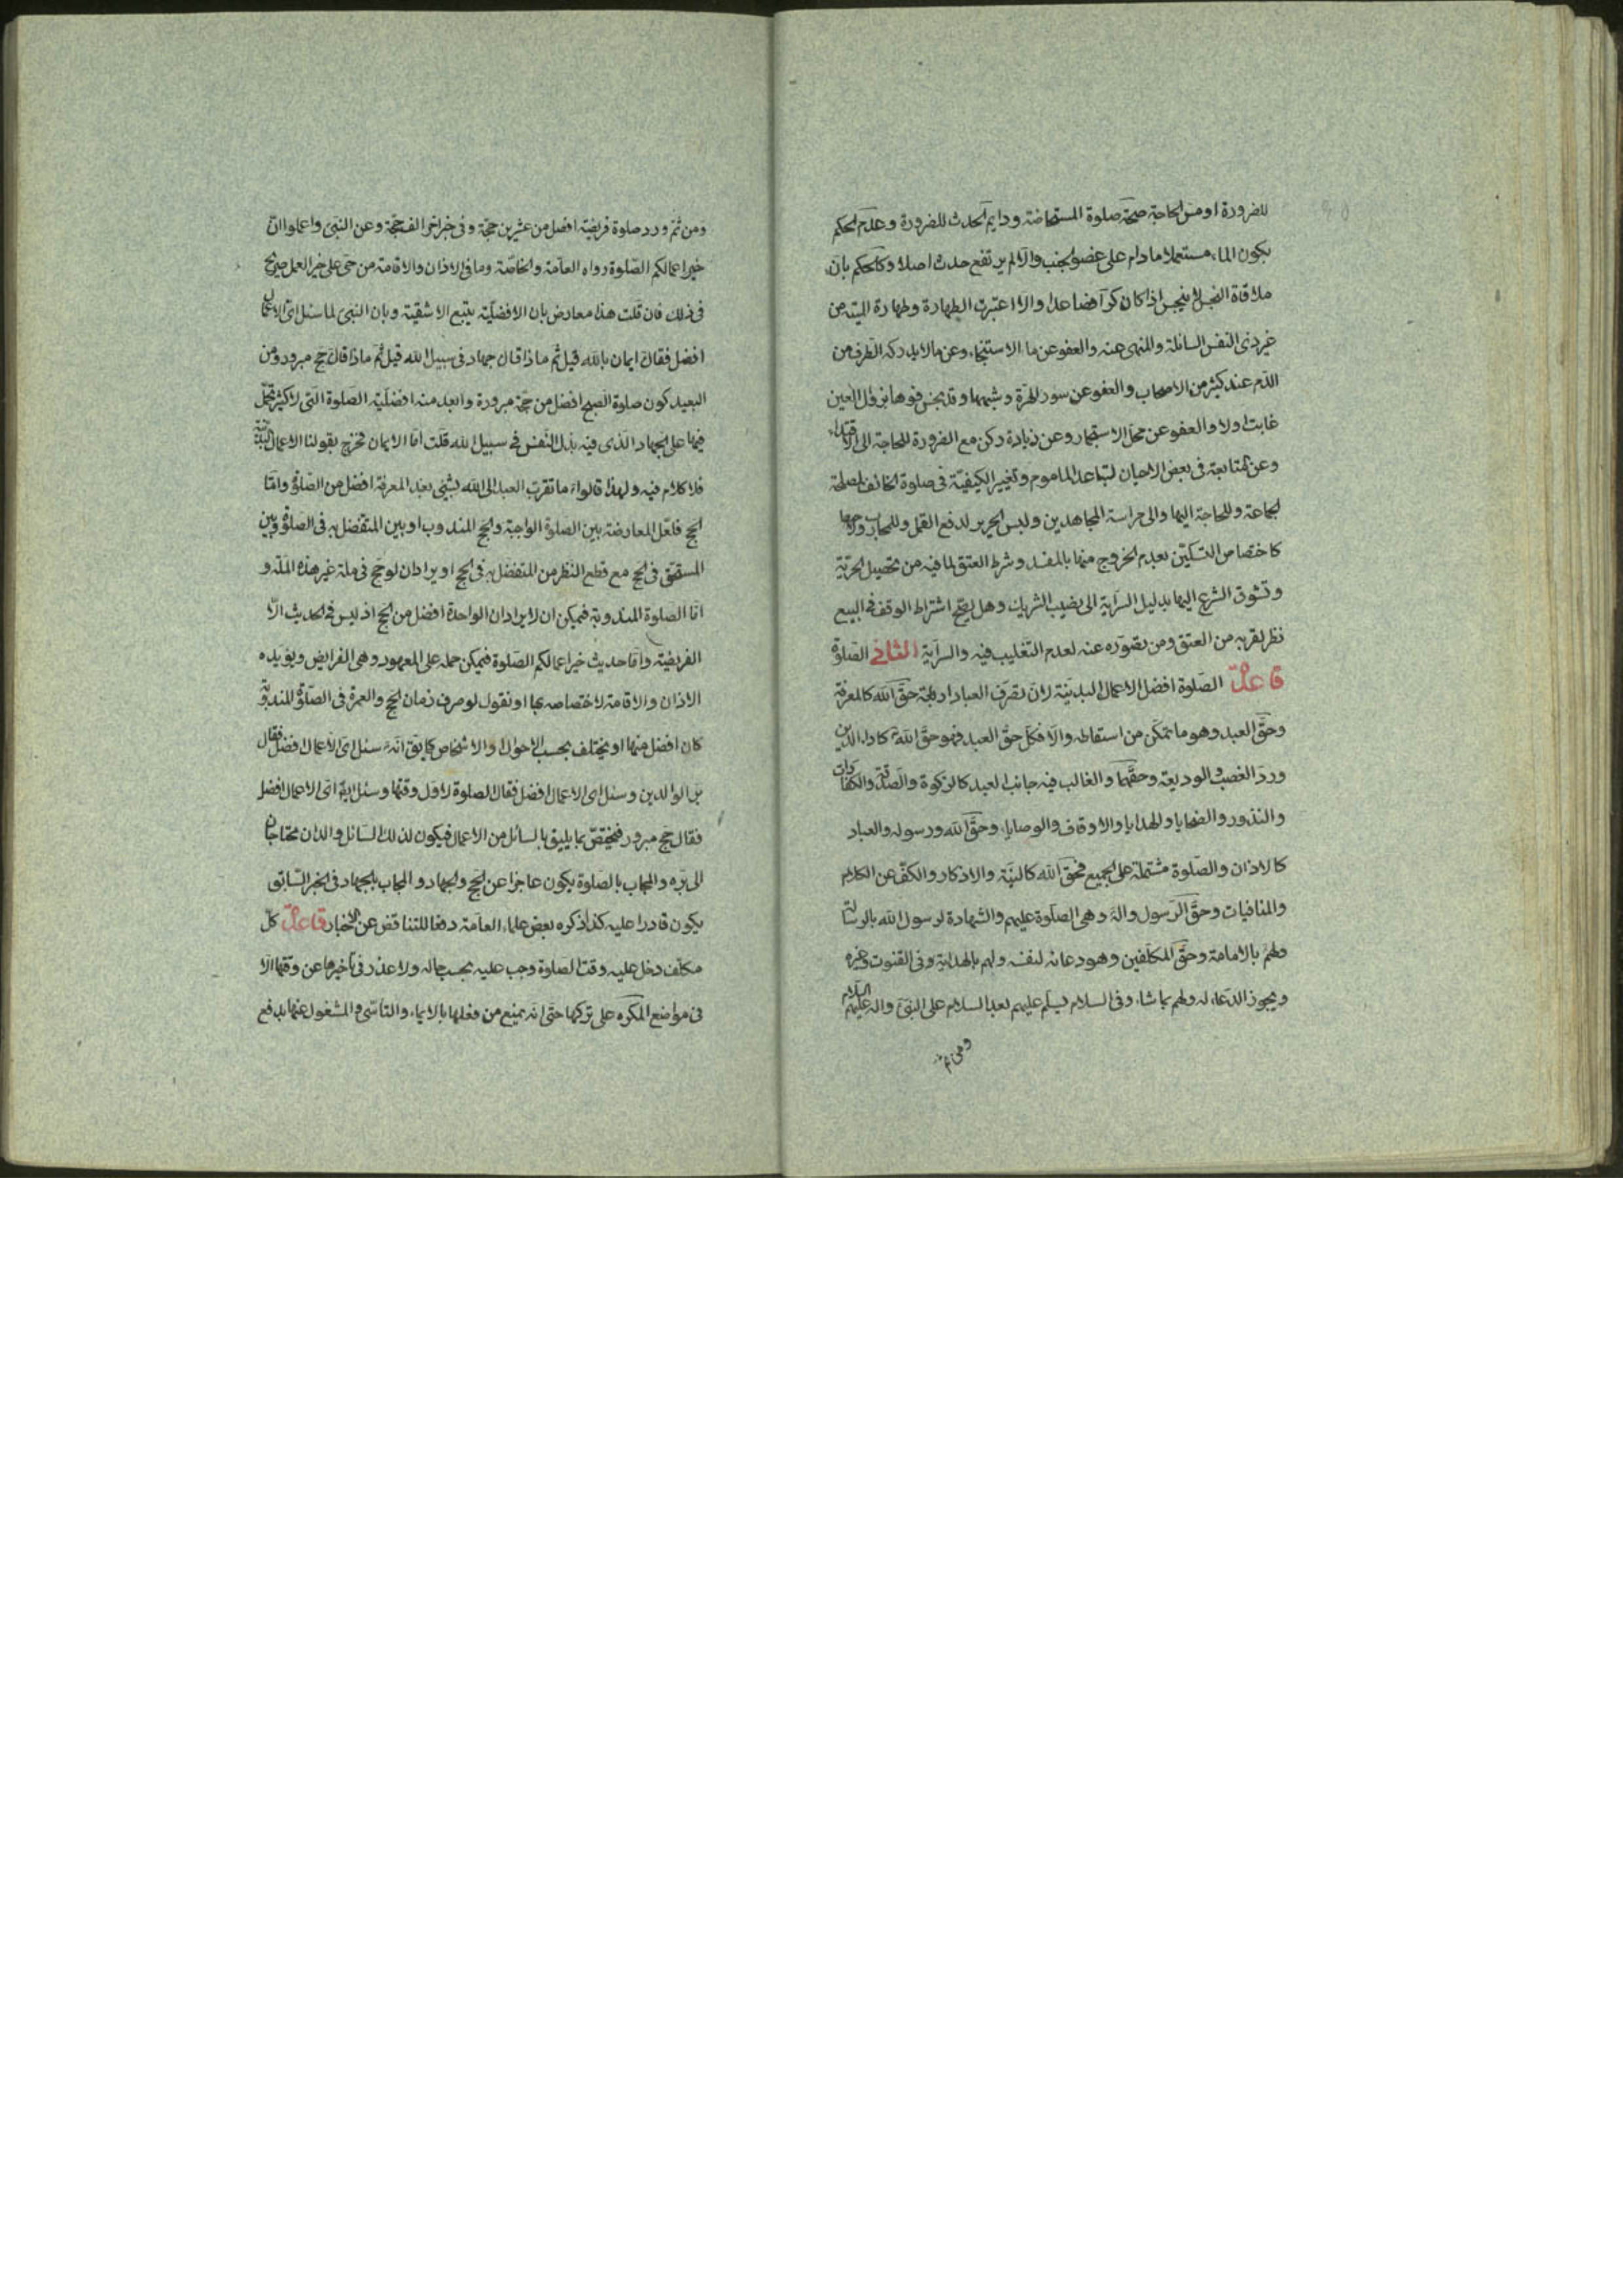 للضرورة او مس الحاجة صحة صلوة المستحاضة ودايم الحدث للضرورة وعدم الحكم
بكون الماء مستعملا ما دام على عضو الجنب والا لم يرتفع حدث اصلا وكالحكم بان
ملاقاة النجس لا ينجس اذا كان كرا فضاعدا والا اعتبرت الطهارة وطهارة الميتة من
غير ذى النفس السائلة والمنهى عنه والعفو عن ماء الاستنجاء وعن ما لا يدركه الطرف من
الدم عند كثير من الاصحاب والعفو عن سور الهرة وشبهها وقد نجس فوها بزوال العين
غابت اولا والعفو عن محل الاستجمار وعن زيادة ركن مع الضرورة للحاجة الى الاقتداء
وعن المتابعة فى بعض الاحيان لتباعد الماموم وتغيير الكيفية فى صلوة الخائف لمصلحة
الجماعة وللحاجة اليها والى حراسة المجاهدين ولبس الحرير لدفع القمل وللمحارب
كاختصاص التسكين بعدم الخروج منها بالمفسد وشرط العتق لما فيه من تحصيل الحرية
وتشوق الشرع اليها بدليل السراية الى نصيب الشريك وهل يصح اشتراط الوقف فى البيع
نظر لقربه من العتق ومن قصوره عنه لعدم التغليب فيه والسراية الثانى الصلوة
قاعدة الصلوة افضل الاعمال البدنية لان تصرف العباد اربعة حق الله كالمعرفة
وحق العبد وهو ما تمكن من اسقاطه والا فكل حق العبد فهو حق الله كاداء الدين
ورد الغصب والوديعة وحقهما والغالب فيه جانب العبد كالزكوة والصدقة والكفارات
والنذور والضحايا والهدايا والاوقاف والوصايا، وحق الله ورسوله والعباد
كالاذان والصلوة مشتملة على الجميع فحق الله كالنية والاذكار والكف عن الكلام
والمنافيات وحق الرسول واله وهى الصلوة عليهم والشهادة لرسول الله بالرسالة
ولهم بالامامة وحق المكلفين وهو دعائه لنفسه ولهم بالهداية وفى القنوت وغيره
ويجوز الدعاء له ولهم بما شاء وفى السلام يسلم عليهم بعد السلام على النبى واله عليهم السلام
ومن ثم
ومن ثم ورد صلوة فريضة افضل من عشرين حجة وفى خبر اخر الف حجة وعن النبى واعلموا ان
خير اعمالكم الصلوة رواه العامة والخاصة وما فى الاذان والاقامة من حى على خير العمل صريح
فى ذلك فان قلت هذا معارض بان الافضلية يتبع الاشقية وبان النبى لما سئل اى الاعمال
افضل فقال ايمان بالله قيل ثم ماذا قال جهاد فى سبيل الله قيل ثم ماذا قال حج مبرور ومن
البعيد كون صلوة الصبح افضل من حجة مبرورة وابعد منه افضلية الصلوة التى لا كثير تحمل
فيها على الجهاد الذى فيه بذل النفس فى سبيل الله قلت اما الايمان فخرج بقولنا الاعمال البدنية
فلا كلام فيه ولهذا قالوا ما تقرب العبد الى الله بشيء بعد المعرفة افضل من الصلوة واما
الحج فلعل المعارضة بين الصلوة الواجبة والحج المندوب او بين المتفضل به فى الصلوة وبين
المستحق فى الحج مع قطع النظر من المتفضل به فى الحج او يراد ان لو حج فى ملة غير هذه الملة و
اما الصلوة المندوبة فيمكن ان لا يراد ان الواحدة افضل من الحج اذ ليس فى الحديث الا
الفريضة واما حديث خير اعمالكم الصلوة فيمكن حمله على المعهود وهى الفرايض ويؤيده
الاذان والاقامة لاختصاصه بها او نقول لو صرف زمان الحج والعمرة فى الصلوة المندوبة
كان افضل منهما او يختلف بحسب الاحوال والاشخاص كما نقل انه سئل اى الاعمال افضل فقال
بر الوالدين وسئل اى الاعمال افضل فقال الصلوة لاول وقتها وسئل اى الاعمال افضل
فقال حج مبرور فيختص بما يليق بالسائل من الاعمال فيكون لذلك السائل والدان محتاجان
الى بره والمجاب بالصلوة يكون عاجزا عن الحج والجهاد والمجاب بالجهاد فى الخبر السابق
يكون قادرا عليه كذا ذكره بعض علماء العامة دفعا للتناقض عن الاخبار قاعدة كل
مكلف دخل عليه وقت الصلوة وجب عليه بحسب حاله ولا عذر فى تاخيرها عن وقتها الا
فى مواضع المكره على تركها حتى انه يمنع من فعلها بالايماء والناسى والمشغول عنها بدفع